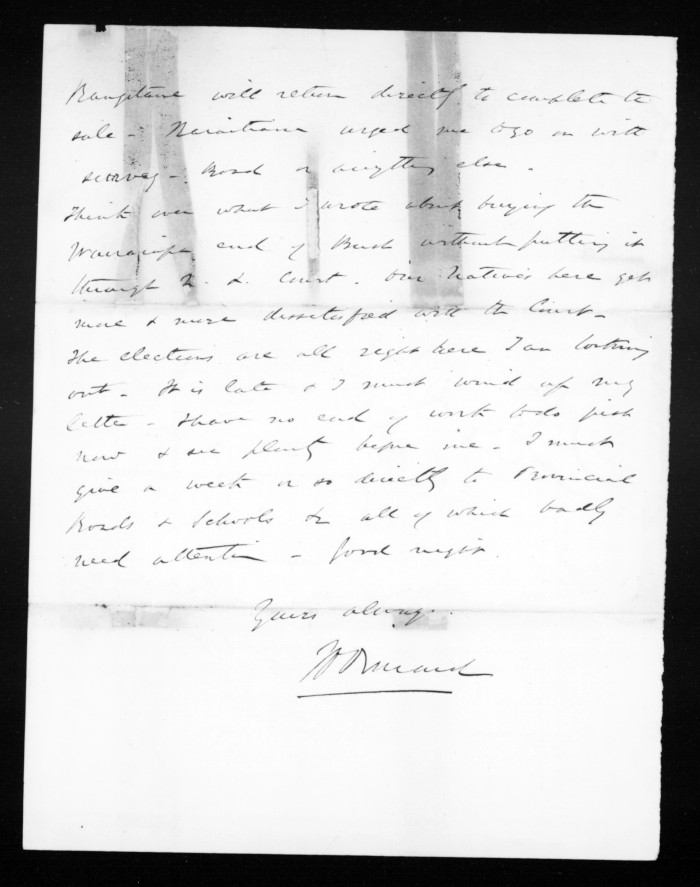 Rangitane will return directly to complete the
sale - Karaitiana urged me to go on with
survey - Road or anything else -
Think over what I wrote about buying the
Wairarapa end of Bush without putting it
through N. L. Court. Our Natives here get
more & more dissatisfied with the Court -
The elections are all right here I am looking
out - It is late & I must wind up my
letter - I have no end of work to do just
now & see plenty before me - I must
give a week or so directly to Provincial
Roads & Schools &c all of which badly
need attention - Good night.
Yours always
JD Ormond